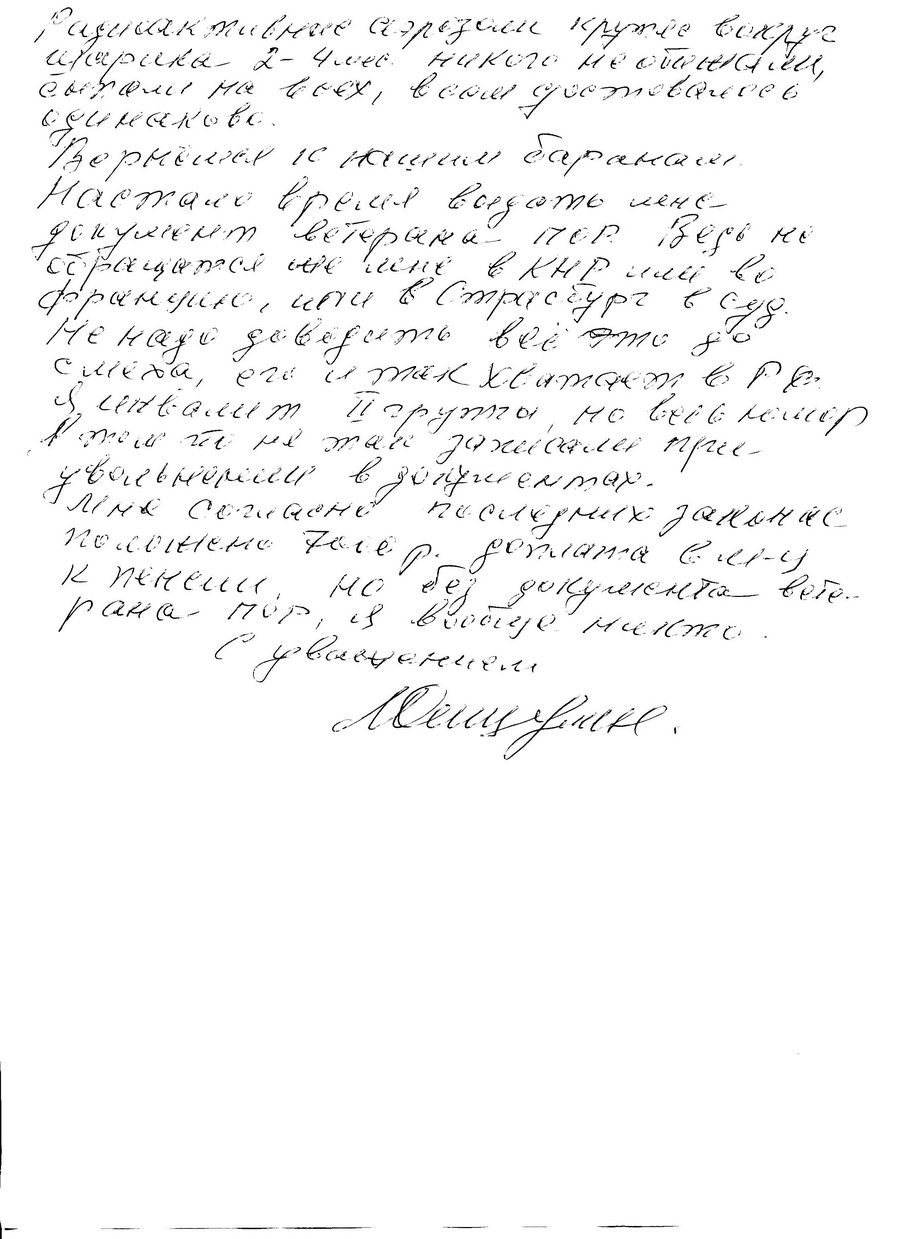 Радиоактивные аэрозоли кружа вокруг
шарика 2-4 мес никого не обижали,
сыпали на всех, всем доставалось
одинаково.
Вернёмся к нашим баранам.
Настало время выдать мне
документ ветерана ПОР. Ведь не
обращатся же мне в КНР или во
Францию, или в Страсбург в суд.
Не надо доводить всё это до
смеха, его и так хватает в РФ.
Я инвалит II группы, но весь юмор
в том то не так записали при
увольнении в документах.
Мне согласно последних законов
положено 7000 р. доплата в м-ц
к пенсии, но без документа вете-
рана ПОР, я вообще никто.
С уважением